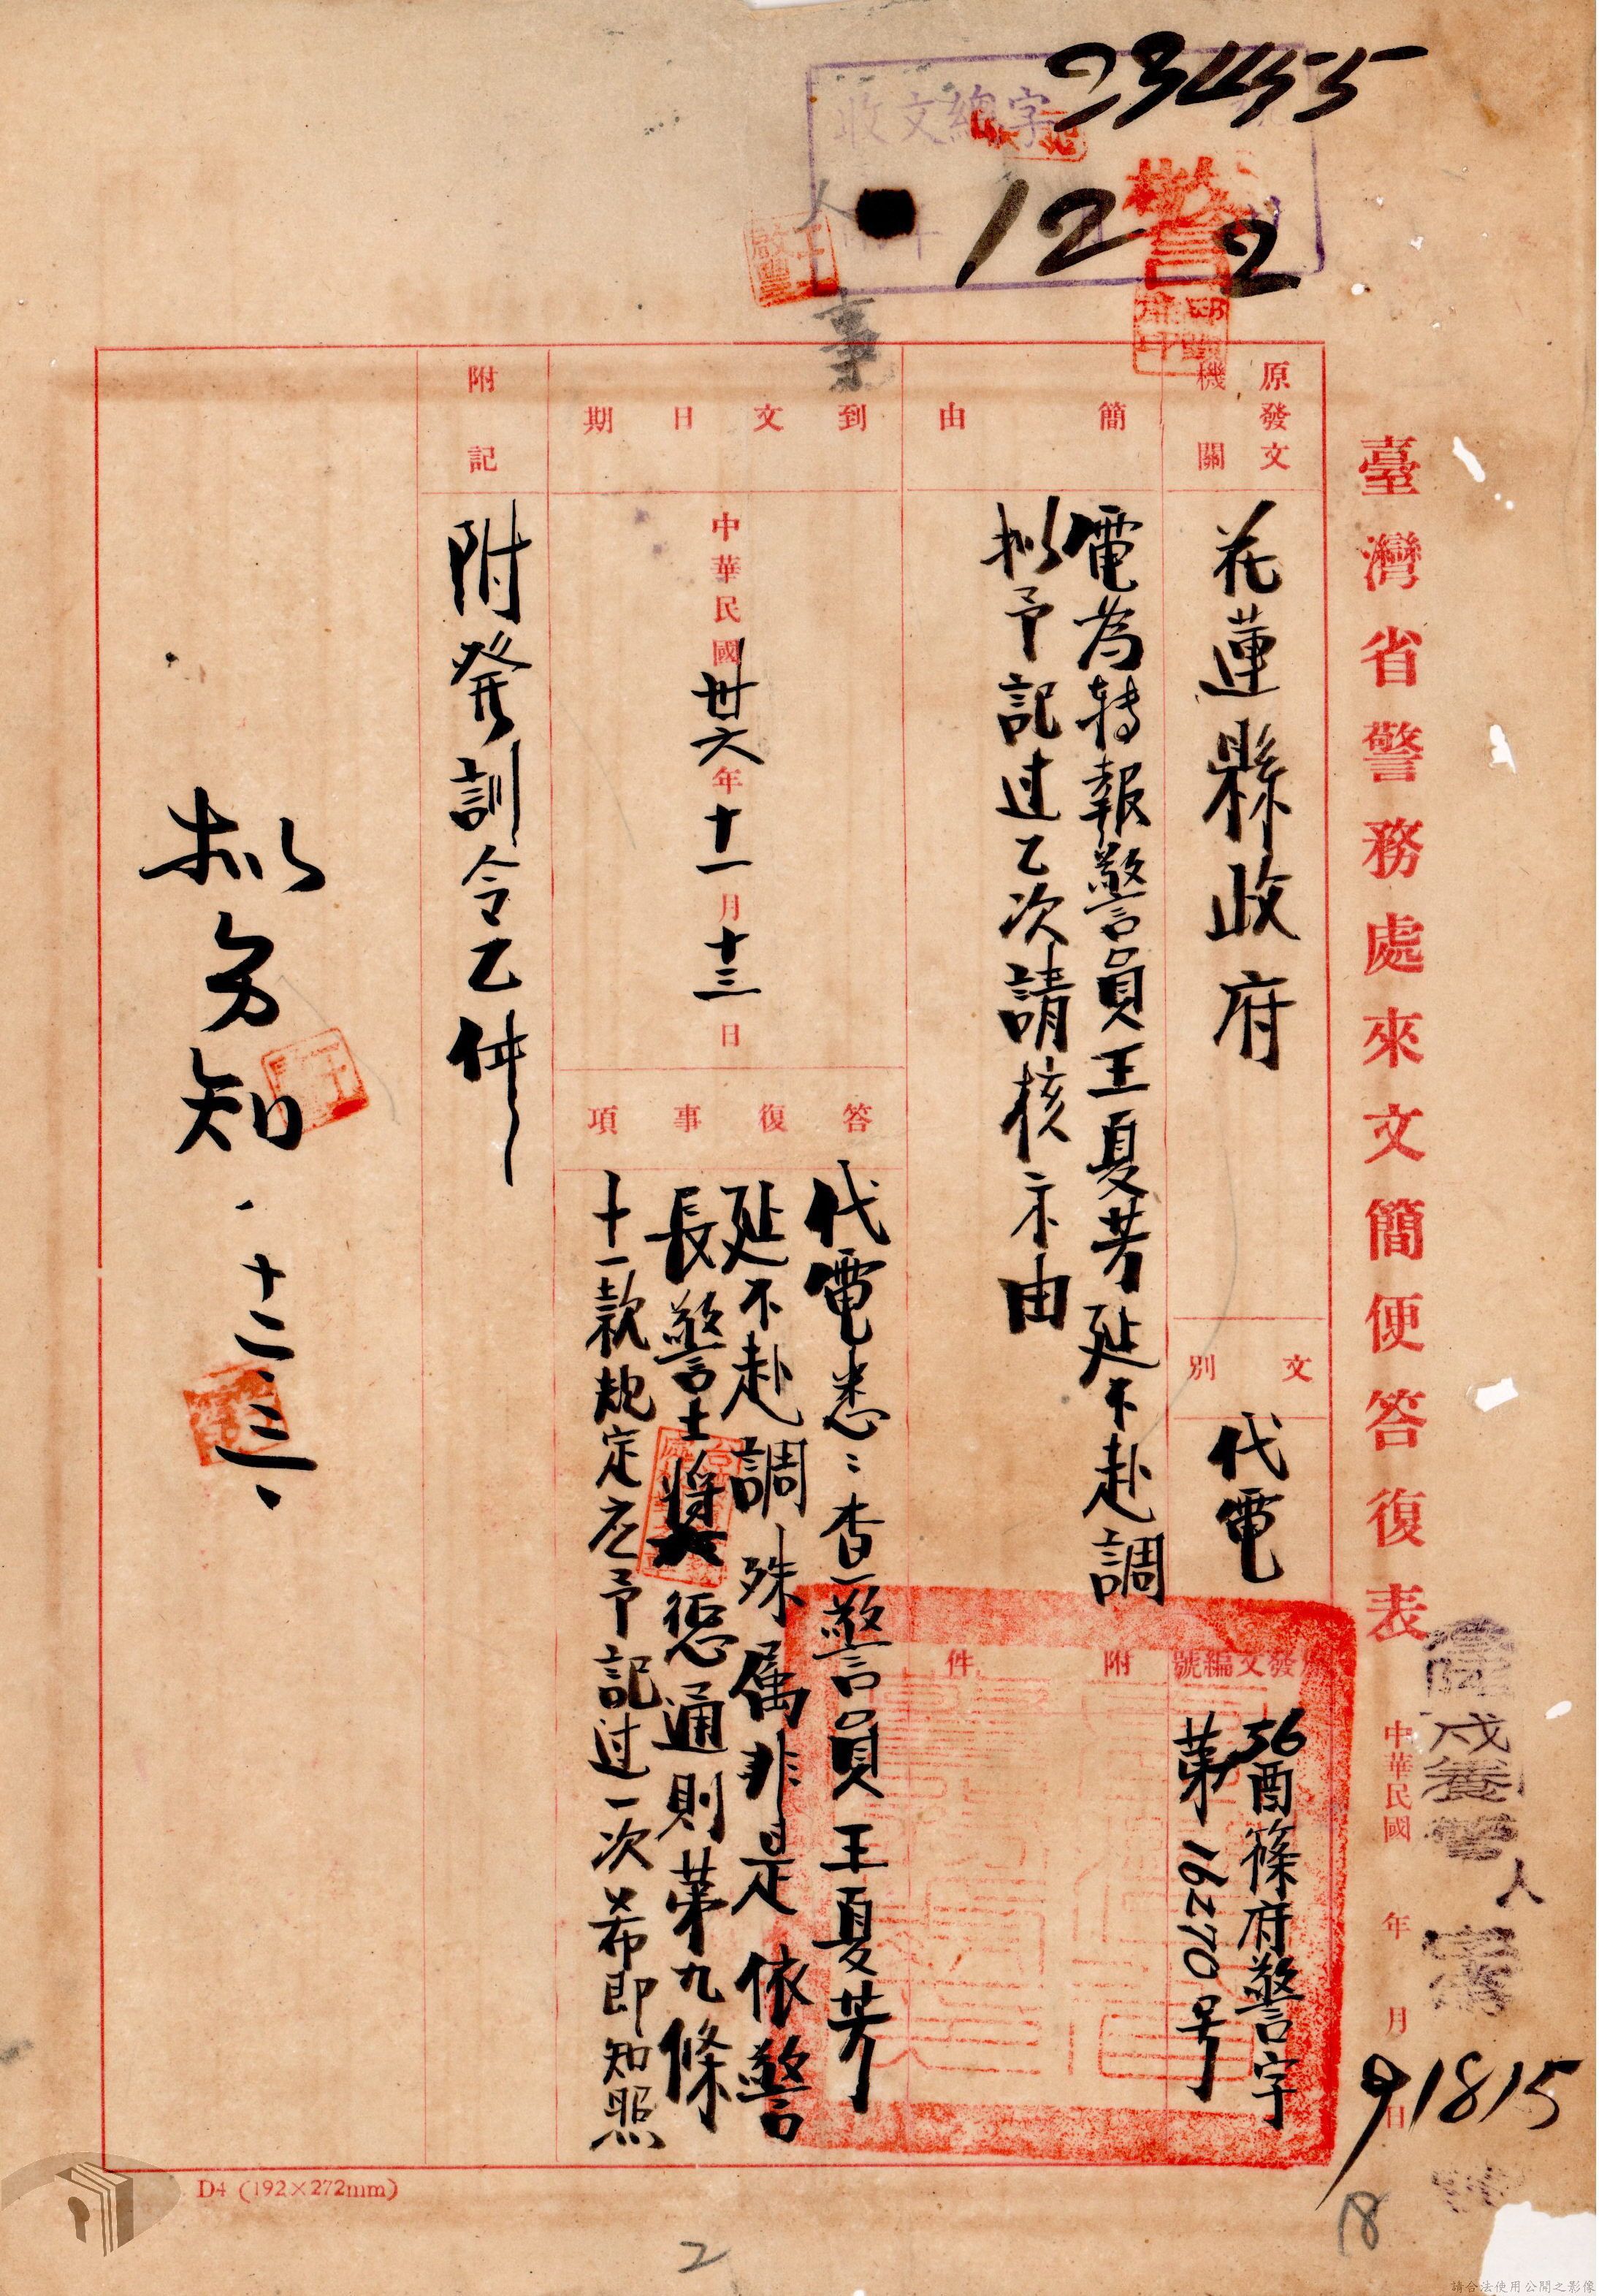 23455
收文總字
12 2
警
人
事
臺灣省警務處來文簡便答復表
中華民國 年 月 日
戌養警
人
字
91815
號
原發文機關
花蓮縣政府
文別
代電
原發文編號
36酉篠府警字
第16270号
簡由
電為轉報警員王夏芳延不赴調
拟予記过乙次請核示由
附件
到文日期
中華民國卅六年十一月十三日
答復事項
代電悉:查警員王夏芳
延不赴調殊属非是依警
長警士獎懲通則第九條
十一款規定应予記过一次希即知照
附記
附発訓令乙件
拟分知
十二、三、
D4 (192×272mm)
2
18
請合法使用公開之影像